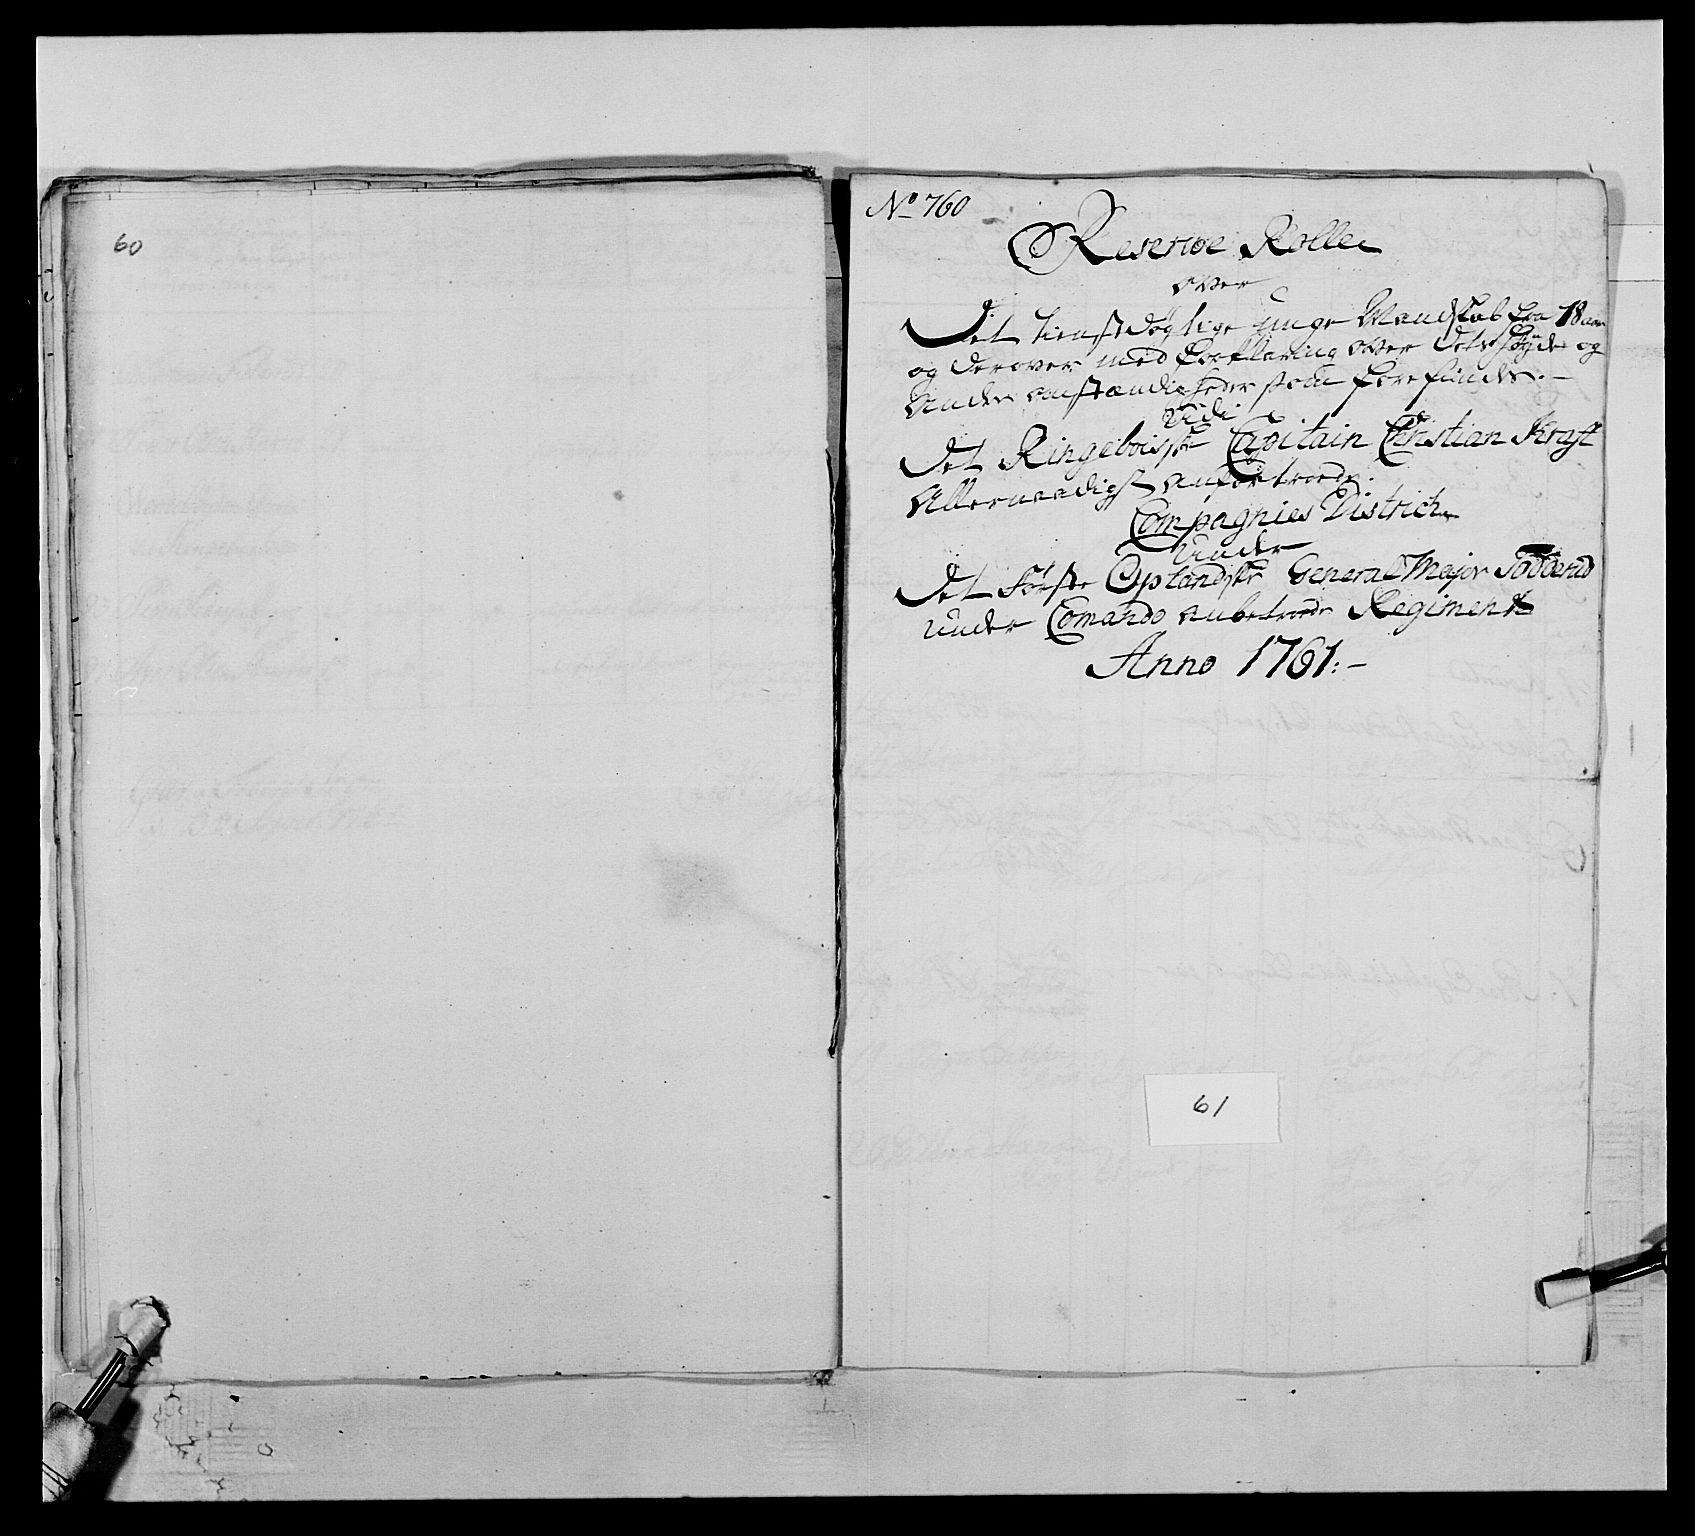 60
No 760
Reserve Rolle
over
Det tienstdøgtige unge Mandskab fra 18 aar
og derover med Forklaring over dets Høyde og
Andre omstændigheder som forefindes.
Udi
Det Ringeboiske Capitain Christian Kraft
Allernaadigst anfortroede
Compagnies District
Under
Det Første Oplandske General Major
under Comando anbetroede Regiment
Anno 1761:-
61